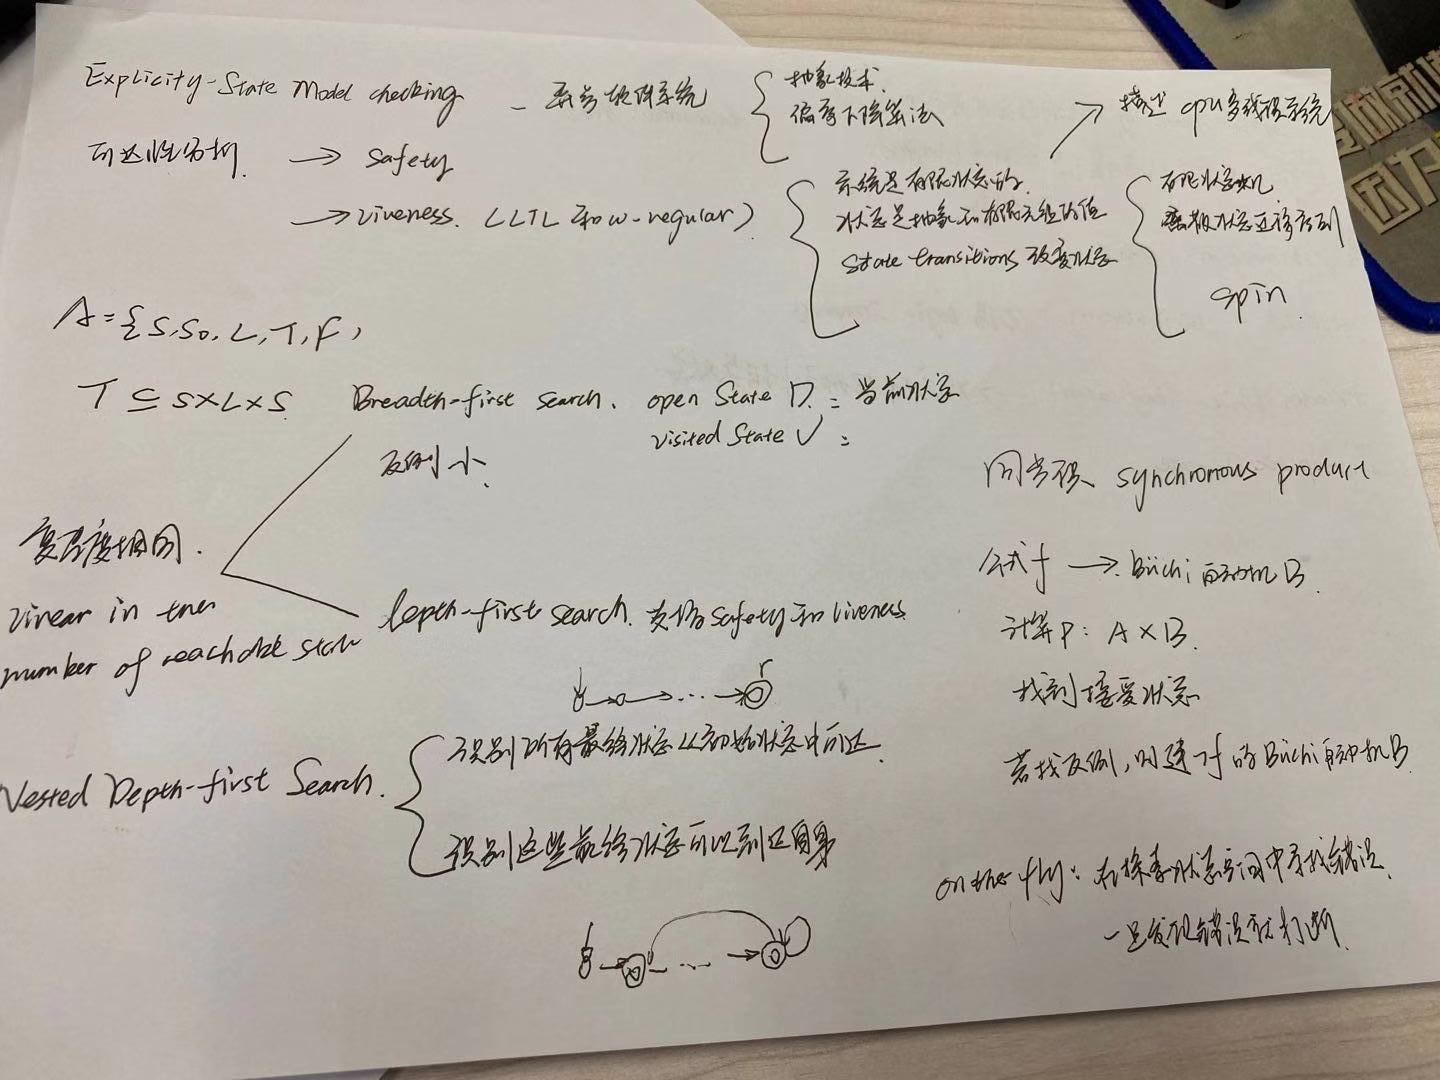 Explicity-State Model checking — 异步软件系统
抽象技术.
偏序下降算法
描述 cpu多线程系统
可达性分析 → safety
→ Liveness. (LTL和w-regular)
系统是有限状态的.
状态是抽象和有限元组的值
State transitions 改变状态
有限状态机
状态迁移序列
Spin.
A={S, S0, L, T, F,
T ⊆ S×L×S
Breadth-first search. open State D. = 当前状态
visited State V =
反例小.
复杂度相同.
Linear in the
number of reachable state
Depth-first search. 支持safety和liveness
r
Nested Depth-first Search.
识别所有最终状态从初始状态中可达.
识别这些最终状态可以到达自身
同步积 synchronous product
公式f → Büchi自动机B.
计算P: A×B.
找到接受状态
若找反例, 则建¬f的Büchi自动机B.
on the fly: 在探索状态空间中寻找错误.
一旦发现错误就打断.